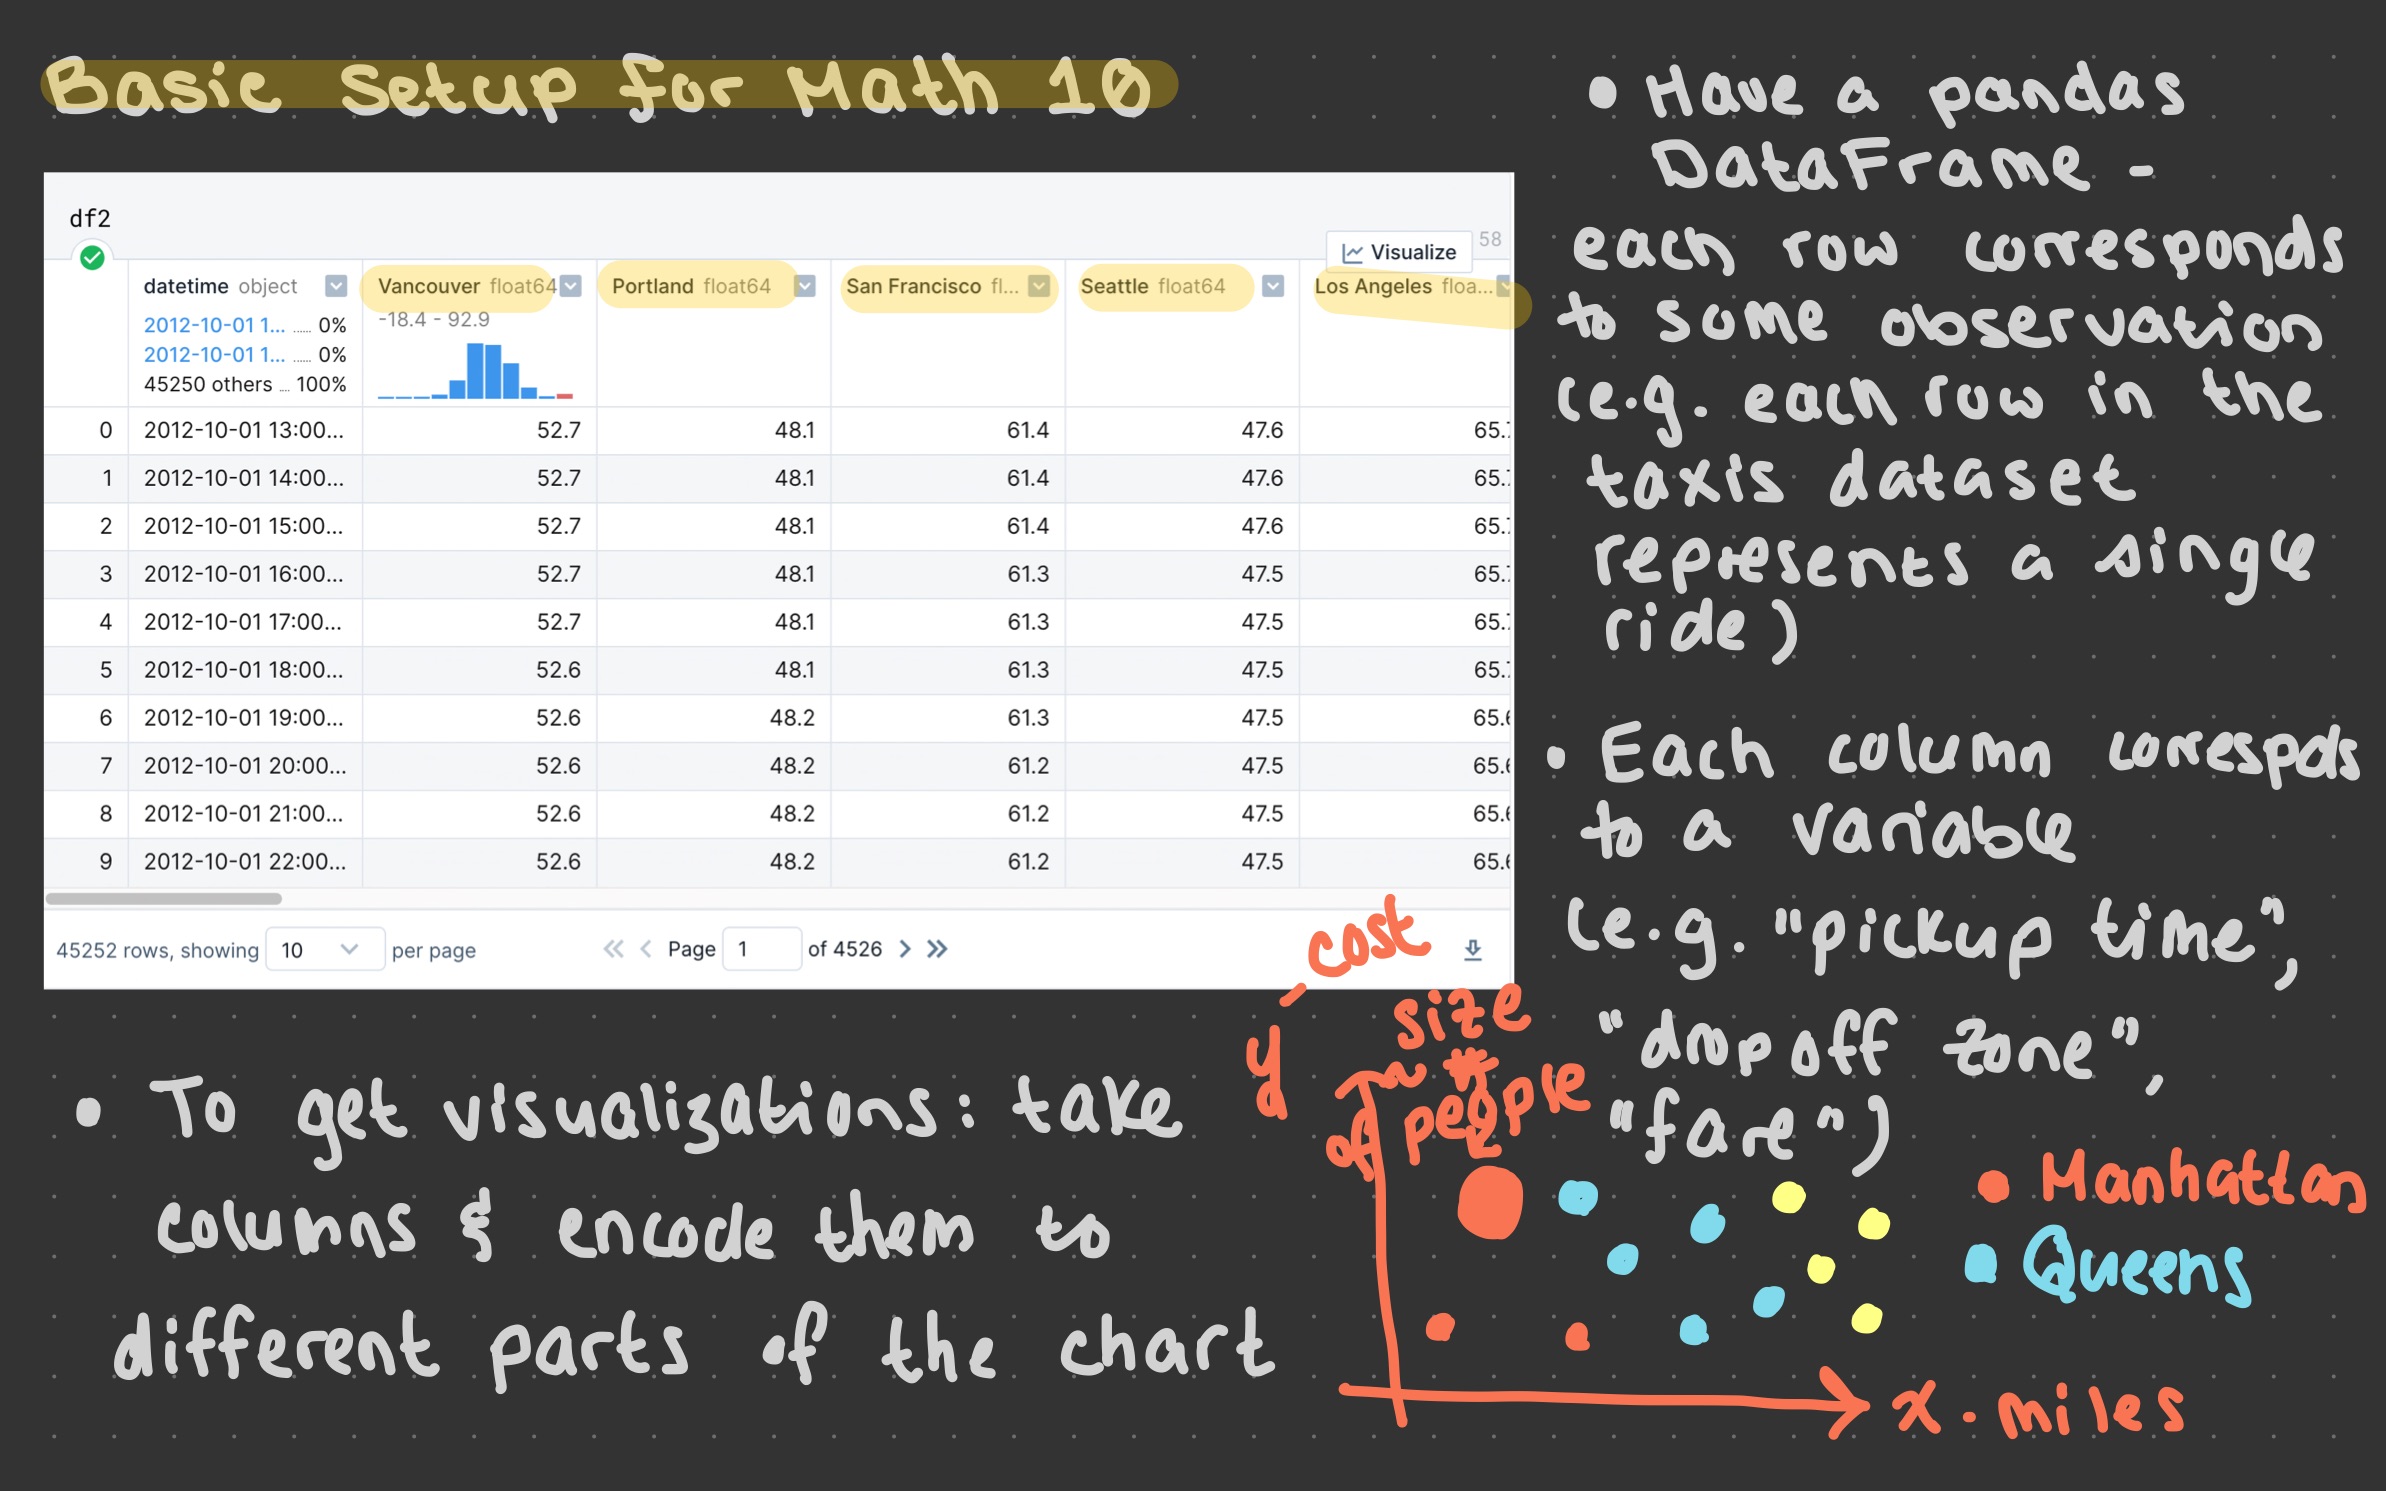 Basic Setup for Math 10
df2
Visualize
58
datetime object
Vancouver float64
Portland float64
San Francisco fl...
Seattle float64
Los Angeles floa...
2012-10-01 1... 0%
2012-10-01 1... 0%
45250 others 100%
-18.4 - 92.9
0 2012-10-01 13:00... 52.7 48.1 61.4 47.6 65.
1 2012-10-01 14:00... 52.7 48.1 61.4 47.6 65.
2 2012-10-01 15:00... 52.7 48.1 61.4 47.6 65.
3 2012-10-01 16:00... 52.7 48.1 61.3 47.5 65.
4 2012-10-01 17:00... 52.7 48.1 61.3 47.5 65.
5 2012-10-01 18:00... 52.6 48.1 61.3 47.5 65.
6 2012-10-01 19:00... 52.6 48.2 61.3 47.5 65.6
7 2012-10-01 20:00... 52.6 48.2 61.2 47.5 65.6
8 2012-10-01 21:00... 52.6 48.2 61.2 47.5 65.6
9 2012-10-01 22:00... 52.6 48.2 61.2 47.5 65.6
45252 rows, showing 10 per page
Page 1 of 4526
• Have a pandas
DataFrame -
each row corresponds
to some observation
(e.g. each row in the
taxis dataset
represents a single
ride)
• Each column correspds
to a variable
(e.g. "pickup time",
"dropoff zone",
"fare")
• To get visualizations: take
columns & encode them to
different parts of the chart
cost
y
size
~ #
of people
Manhattan
Queens
x - miles